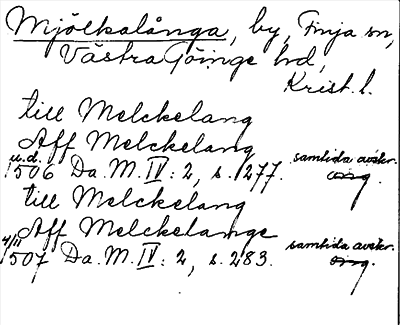 Mjölkalånga, by, Finja sn,
Västra Göinge hd,
Krist. l.
till Melckelang
Aff Melckelang
u.d. 1506 Da. M. IV: 2, s. 277. samtida avskr. orig.
till Melckelang
Aff Melckelange
4/11 1507 Da. M. IV: 2, s. 283. samtida avskr. orig.